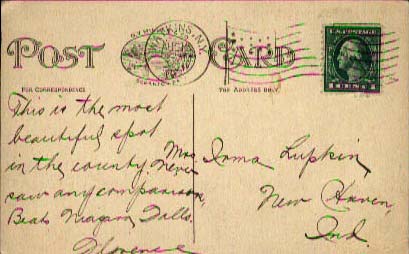 POST CARD
U.S. POSTAGE
1 CENT 1
FOR CORRESPONDENCE
THE ADDRESS ONLY.
This is the most
beautiful spot
in the county. Never
saw any comparison,
Beats Niagara Falls.
Florence
Mrs. Irma Lupkin,
New Haven,
Ind.